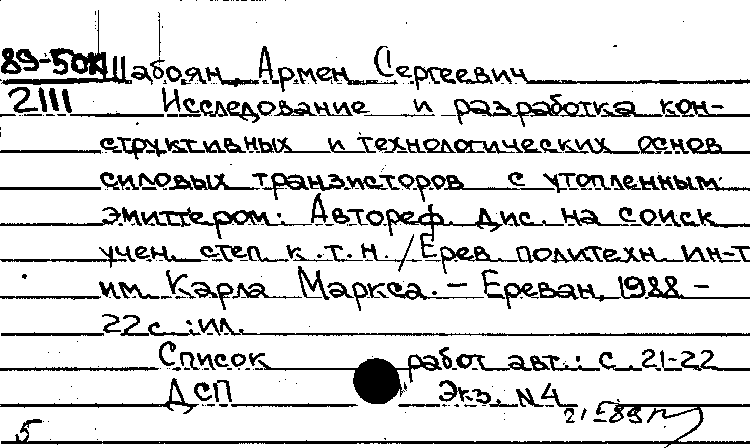 89-50К Шабоян, Армен Сергеевич
2111 Исследование и разработка кон-
структивных и технологических основ
силовых транзисторов с утопленным
эмиттером: Автореф. дис. на соиск
учен. степ. к.т.н. / Ерев. политехн. ин-т
им. Карла Маркса. – Ереван, 1988 –
22 с. : ил.
Список работ авт.: с. 21-22
ДСП Экз. N4
5